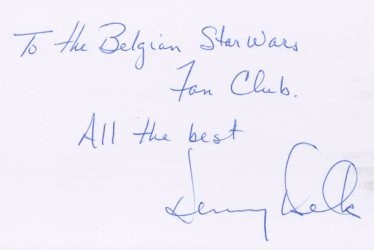 To the Belgian Star Wars
Fan Club.
All the best
Denny Delk